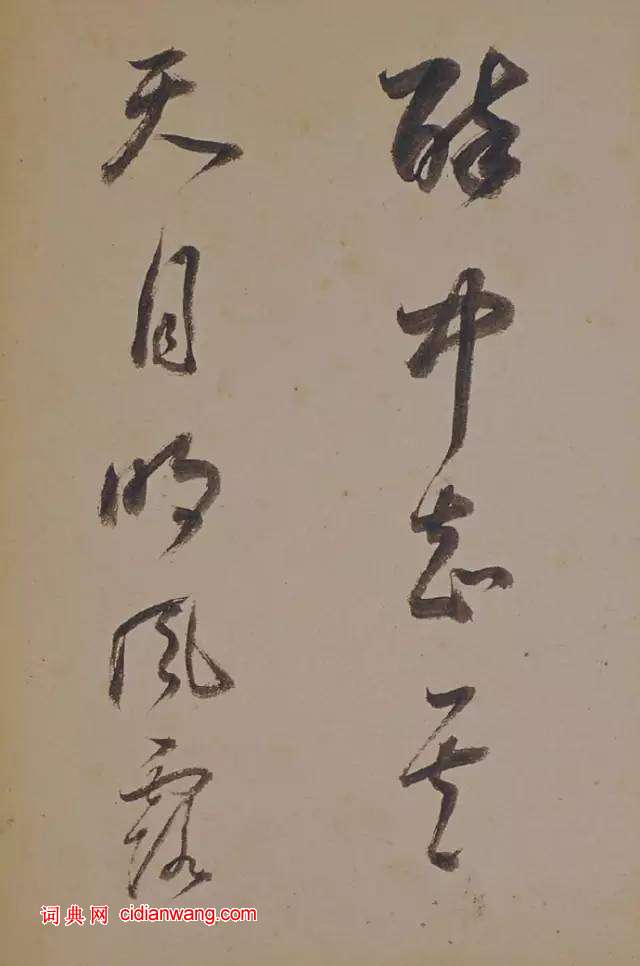 醉中志其
天月明風露
词典网 cidianwang.com